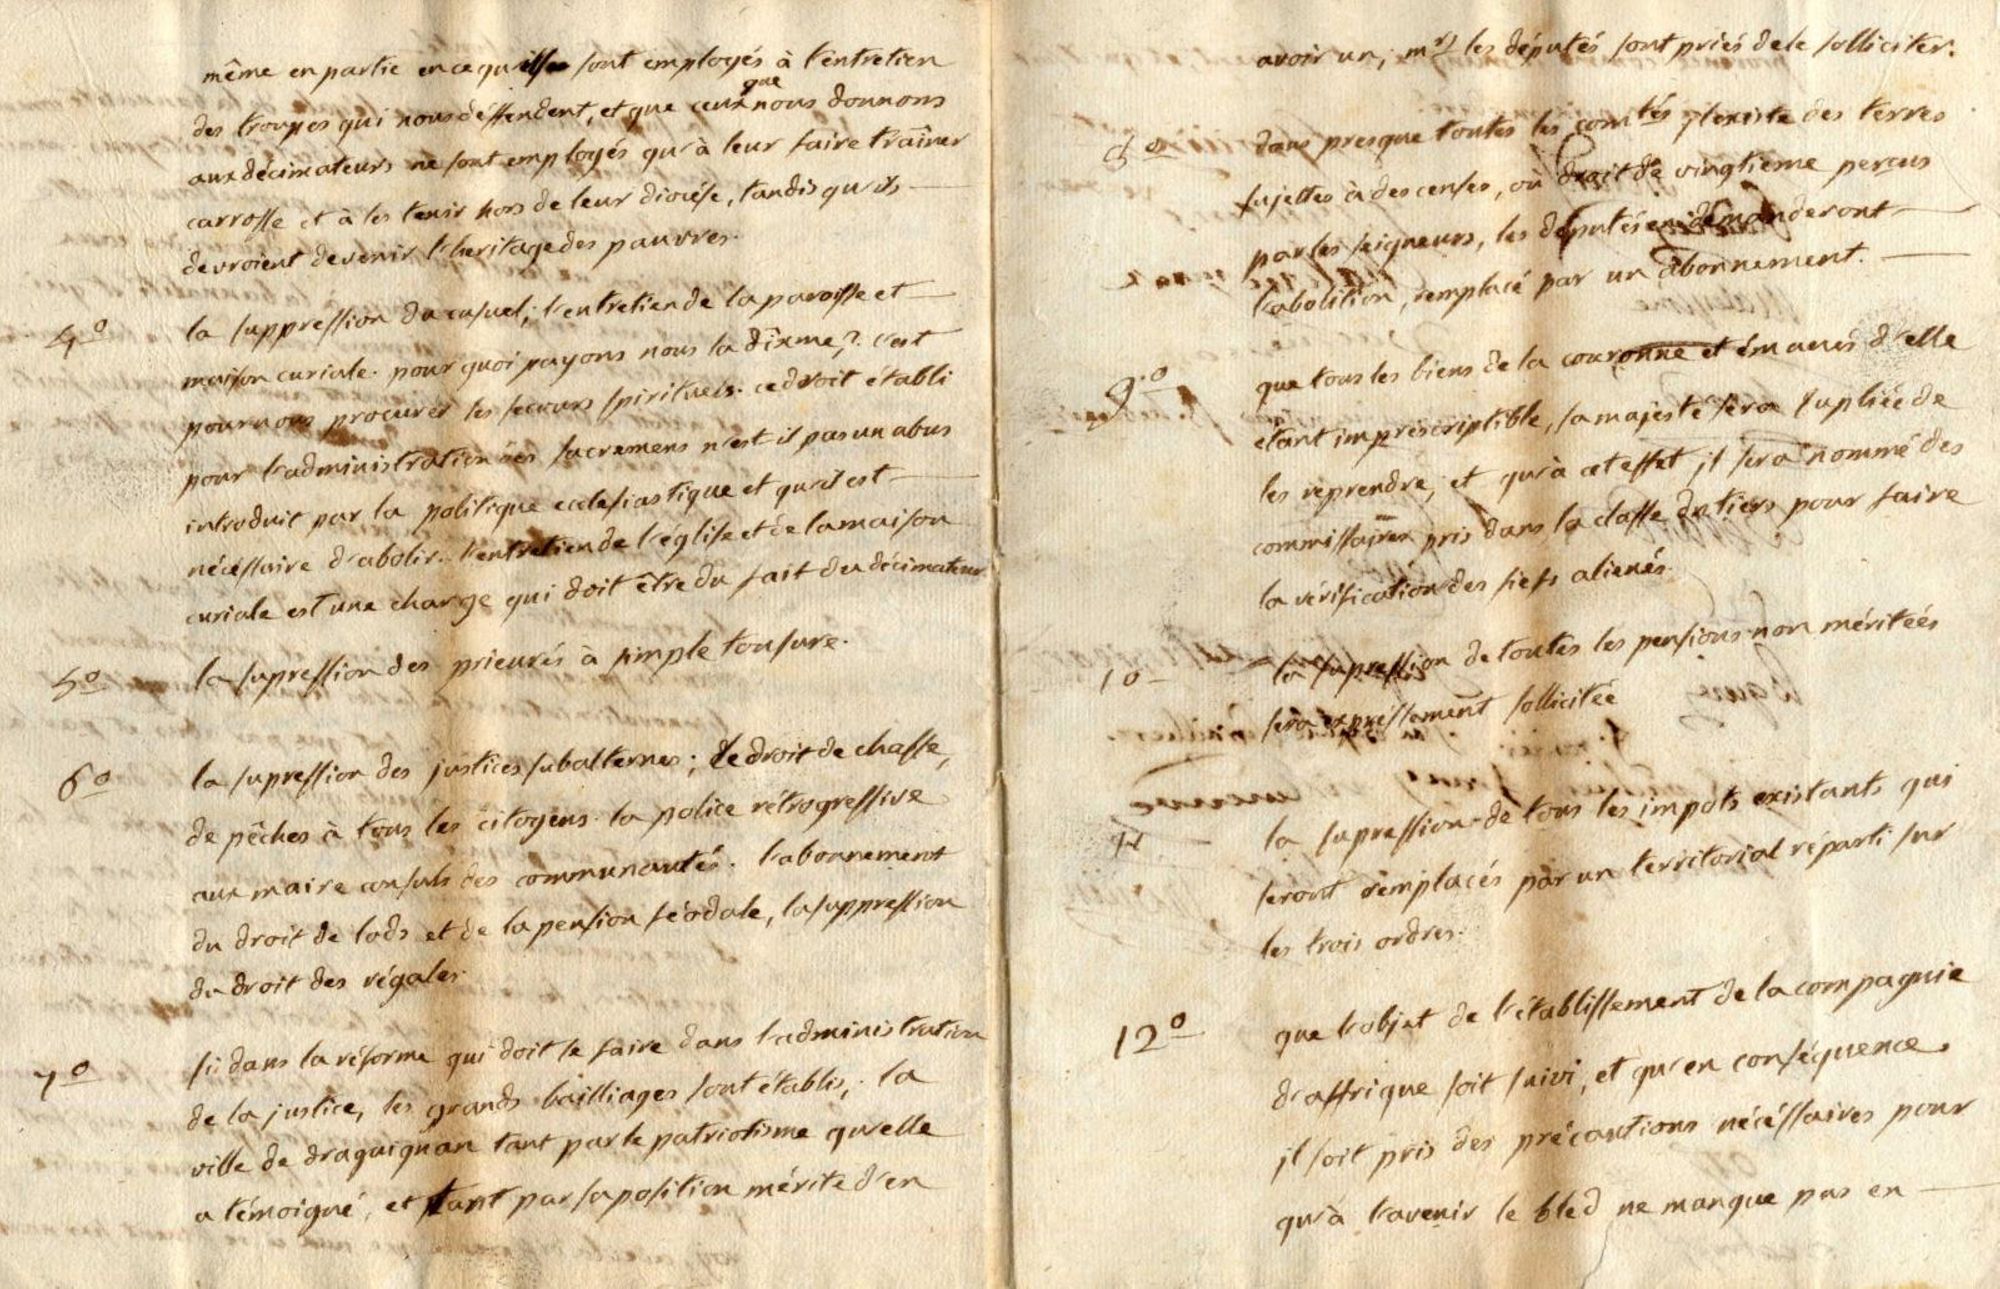 même en partie en ce qu'ils sont employés à l'entretien
des troupes qui nous déffendent, et que ceux que nous donnons
aux décimateurs ne sont employés qu'à leur faire trainer
carrosse et à les tenir hors de leur diocése, tandis qu'ils
devroient devenir l'heritage des pauvres.
4º la suppression du casuel; l'entretien de la paroisse et
maison curiale. pourquoi payons nous la dixme? c'est
pour nous procurer les secours spirituels. ce droit établi
pour l'administration des sacremens n'est il pas un abus
introduit par la politique ecclesiastique et qu'il est
nécéssaire d'abolir. l'entretien de l'église et de la maison
curiale est une charge qui doit être du fait du décimateur
5º la supression des prieurés à simple tonsure.
6º la supression des justices subalternes; le droit de chasse,
de pêches à tous les citoyens. la police rétrogressive
aux maire consuls des communautés. l'abonnement
du droit de lods et de la pension féodale, la suppression
du droit des régales.
7º si dans la réforme qui doit se faire dans l'administration
de la justice, les grands bailliages sont établis, la
ville de draguignan tant par le patriotisme qu'elle
a témoigné, et tant par sa position mérite d'en
avoir un, mrs les députés sont priés de le solliciter.
8º dans presque toutes les comtés il existe des terres
sujettes à des censes, où droit de vingtieme perçus
par les seigneurs, les députés en demanderont
l'abolition, remplacé par un abonnement.
9º que tous les biens de la couronne et émanés d'elle
étant imprescriptible, sa majesté sera supliée de
les reprendre, et qu'à cet effet il sera nommé des
commissaires pris dans la classe du tiers pour faire
la vérification des fiefs alienés.
10 la supression de toutes les pensions non méritées
sera expressement sollicitée
11 la supression de tous les impots existants qui
seront remplacés par un territorial réparti sur
les trois ordres.
12º que l'objet de l'établissement de la compagnie
d'affrique soit suivi, et qu'en conséquence
il soit pris des précautions nécéssaires pour
qu'à l'avenir le bled ne manque pas en